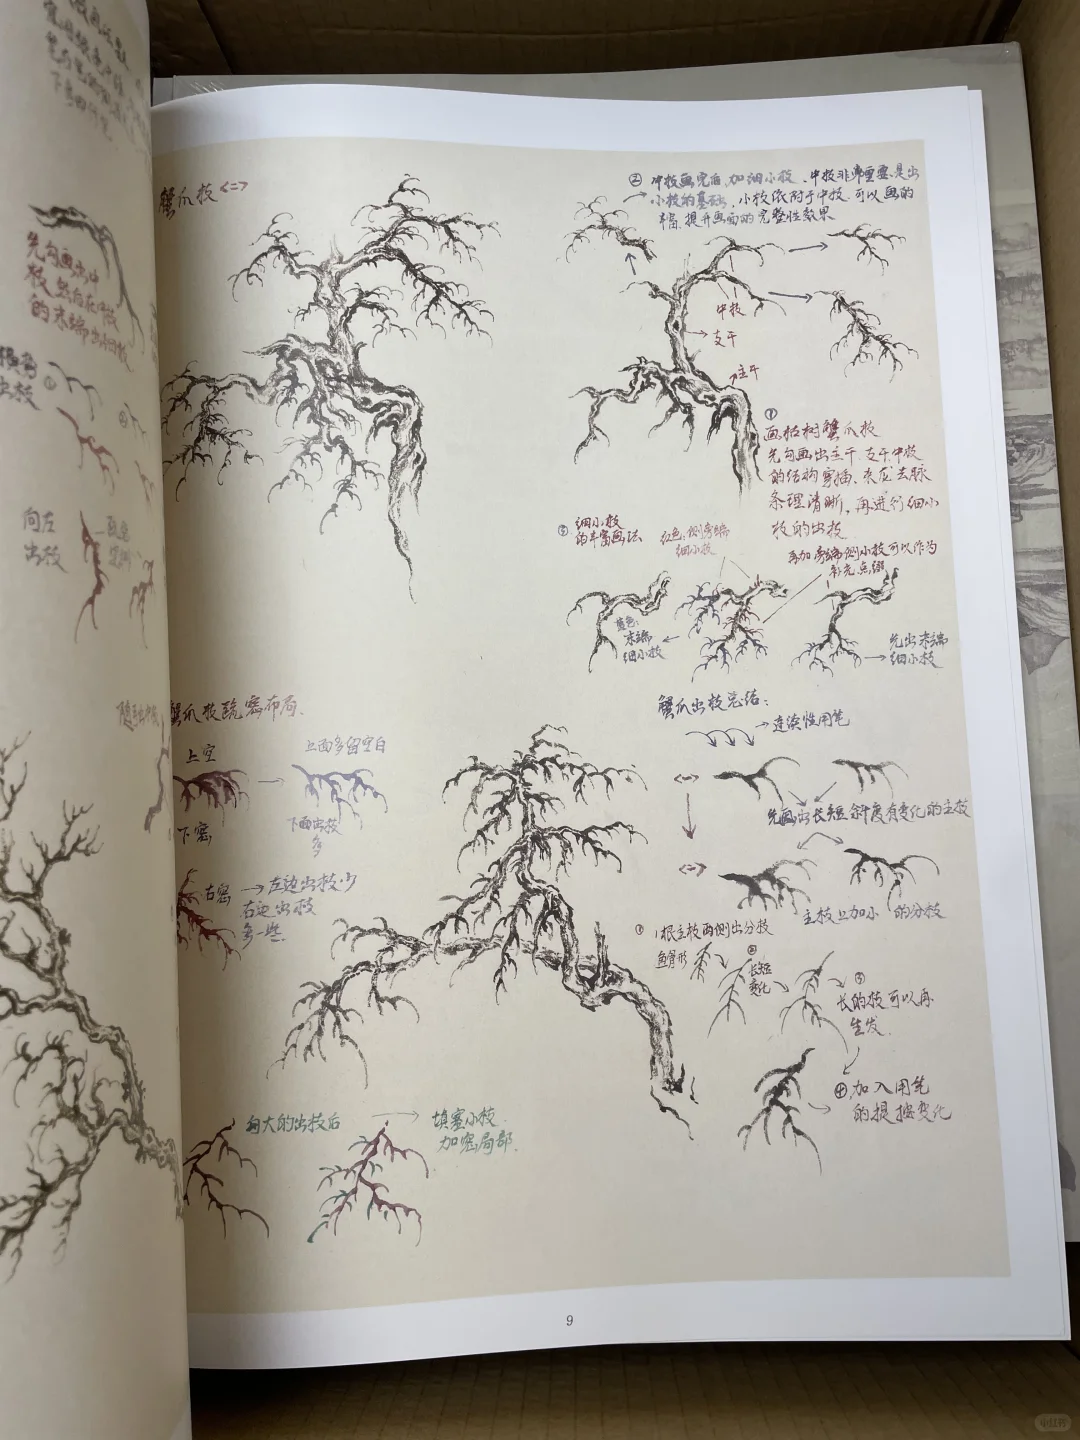 先勾画出中
枝,然后在中枝
的末端出细枝
出枝
①
②
向左
出枝
蟹爪枝<二>
② 中枝画完后,加细小枝、中枝非常重要,是出
小枝的基础,小枝依附于中枝,可以画的
丰富,提升画面的完整性效果
中枝
支干
主干
①
画枯树蟹爪枝
先勾画出主干、支干、中枝
的结构穿插、来龙去脉
条理清晰,再进行细小
枝的出枝
③ 细小枝
的丰富画法
红色:侧旁端
细小枝
再加旁端侧小枝可以作为
补充、点缀
蓝色:
末端
细小枝
先出末端
细小枝
蟹爪枝疏密布局.
上空
上面多留空白
下密
下面出枝
多
右密
左边出枝少
右边出枝
多一些.
蟹爪出枝总结:
连续性用笔
<一>
先画出长短、斜度有变化的主枝
<二>
主枝上加小的分枝
① 1根主枝两侧出分枝
鱼骨形
②
长短
变化
③
长的枝可以再
生发.
④加入用笔
的提按变化
勾大的出枝后
填塞小枝.
加密局部.
9
小红书